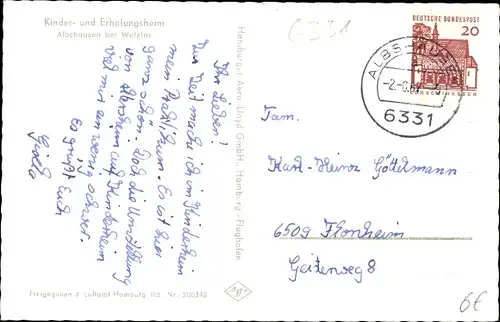 Kinder- und Erholungsheim
Albshausen bei Wetzlar
6331
DEUTSCHE BUNDESPOST
20
LORSCH/HESSEN
ALBS
-2.-6.67
6331
Ihr Lieben!
Zur Zeit mache ich im Kinderheim
mein Praktikum. Es ist hier
ganz schön. Doch die Umstellung
von Altersheim auf Kinderheim
viel mir ein wenig schwer.
Es grüßt Euch
Gisela
Hamburger Aero-Lloyd GmbH., Hamburg-Flughafen
Fam.
Karl-Heinz Göttelmann
6509 Flonheim
Geitenweg 8
Freigegeben d. Luftamt Hamburg lfd. Nr.: 206342
6€